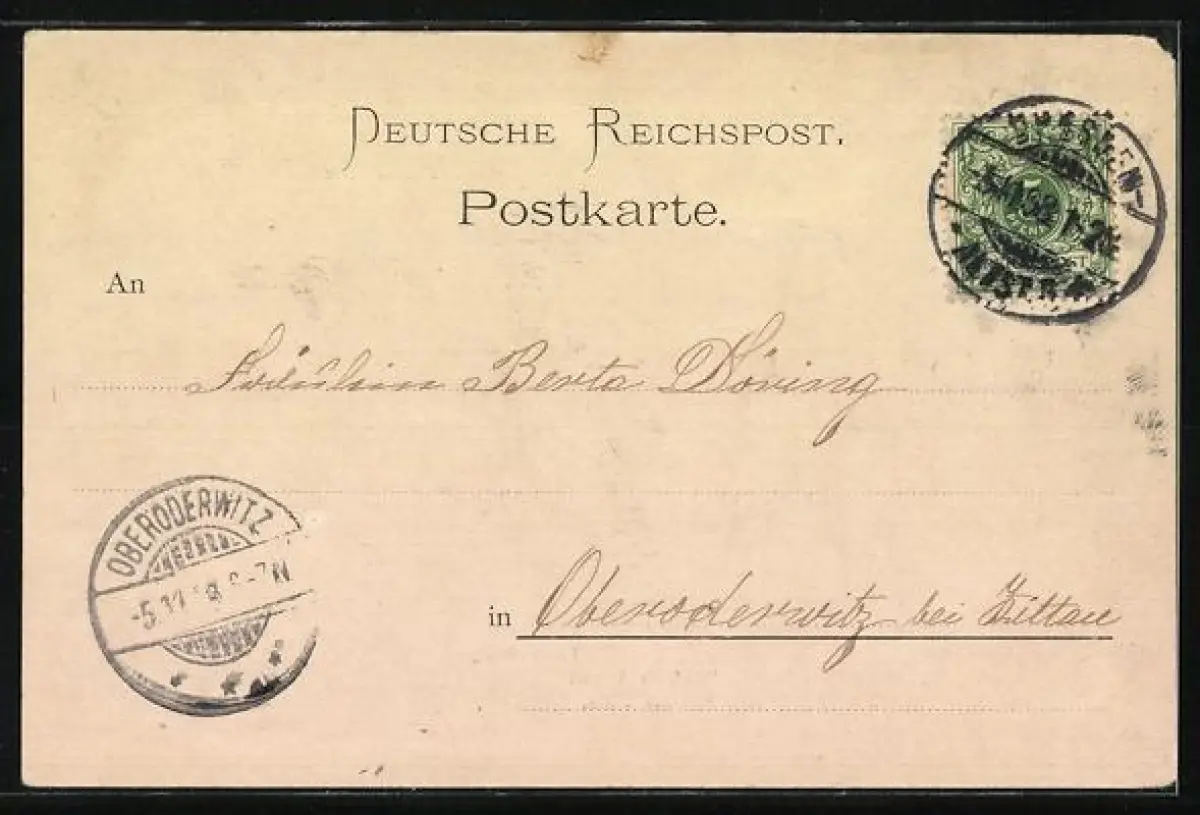 DEUTSCHE REICHSPOST.
Postkarte.
DRESDEN
5
An
Fräulein Berta Döring
OBERODERWITZ
in Oberoderwitz bei Zittau